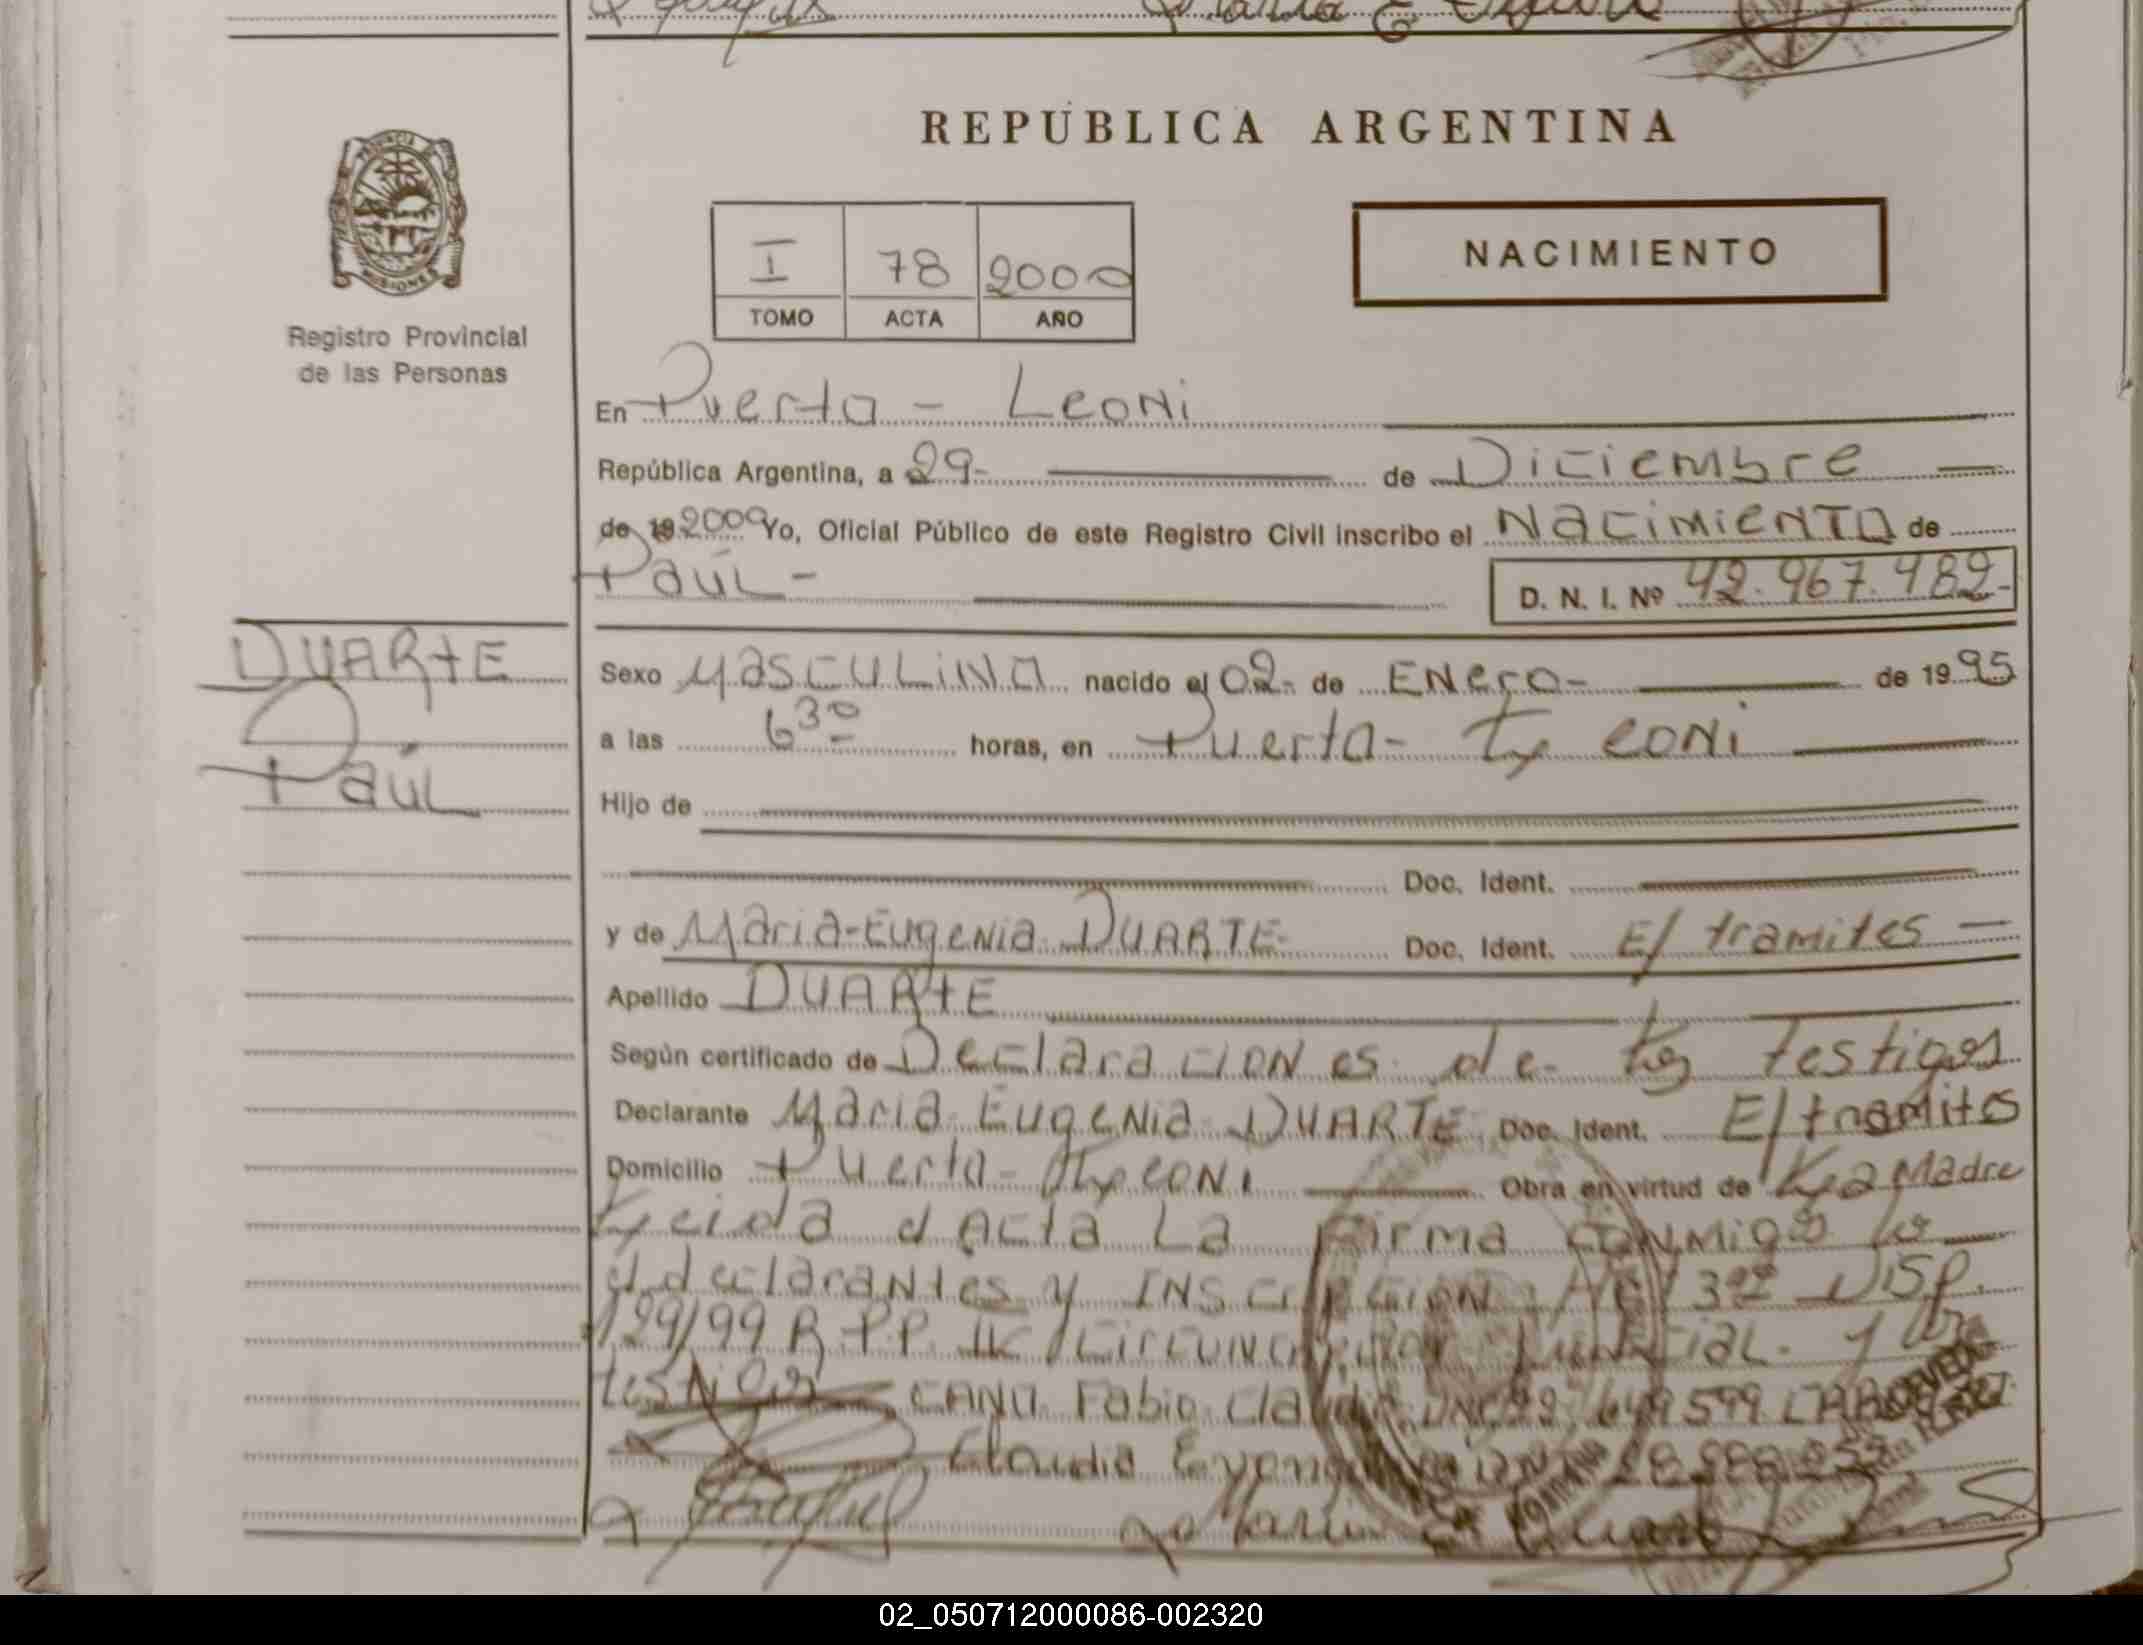 REPÚBLICA ARGENTINA
PROVINCIA DE MISIONES
Registro Provincial
de las Personas
I 78 2000
TOMO ACTA AÑO
NACIMIENTO
En Puerto - Leoni
República Argentina, a 29- de Diciembre
de 19 2000 Yo, Oficial Público de este Registro Civil inscribo el Nacimiento de
Paúl -
D. N. I. Nº 42.967.482-
DUARTE
Paúl
Sexo Masculino nacido el 02- de Enero- de 1995
a las 6³⁰ horas, en Puerto- Leoni
Hijo de
Doc. Ident.
y de Maria-Eugenia DUARTE- Doc. Ident. E/ tramites -
Apellido DUARTE
Según certificado de Declaraciones de los testigos
Declarante Maria Eugenia DUARTE Doc. Ident. E/ tramites
Domicilio Puerto- Leoni Obra en virtud de La Madre
Leida el Acta La Firma conmigo
declarantes y
199/99 R.P.P.
testigos CANO Fabio
Claudia
02_050712000086-002320